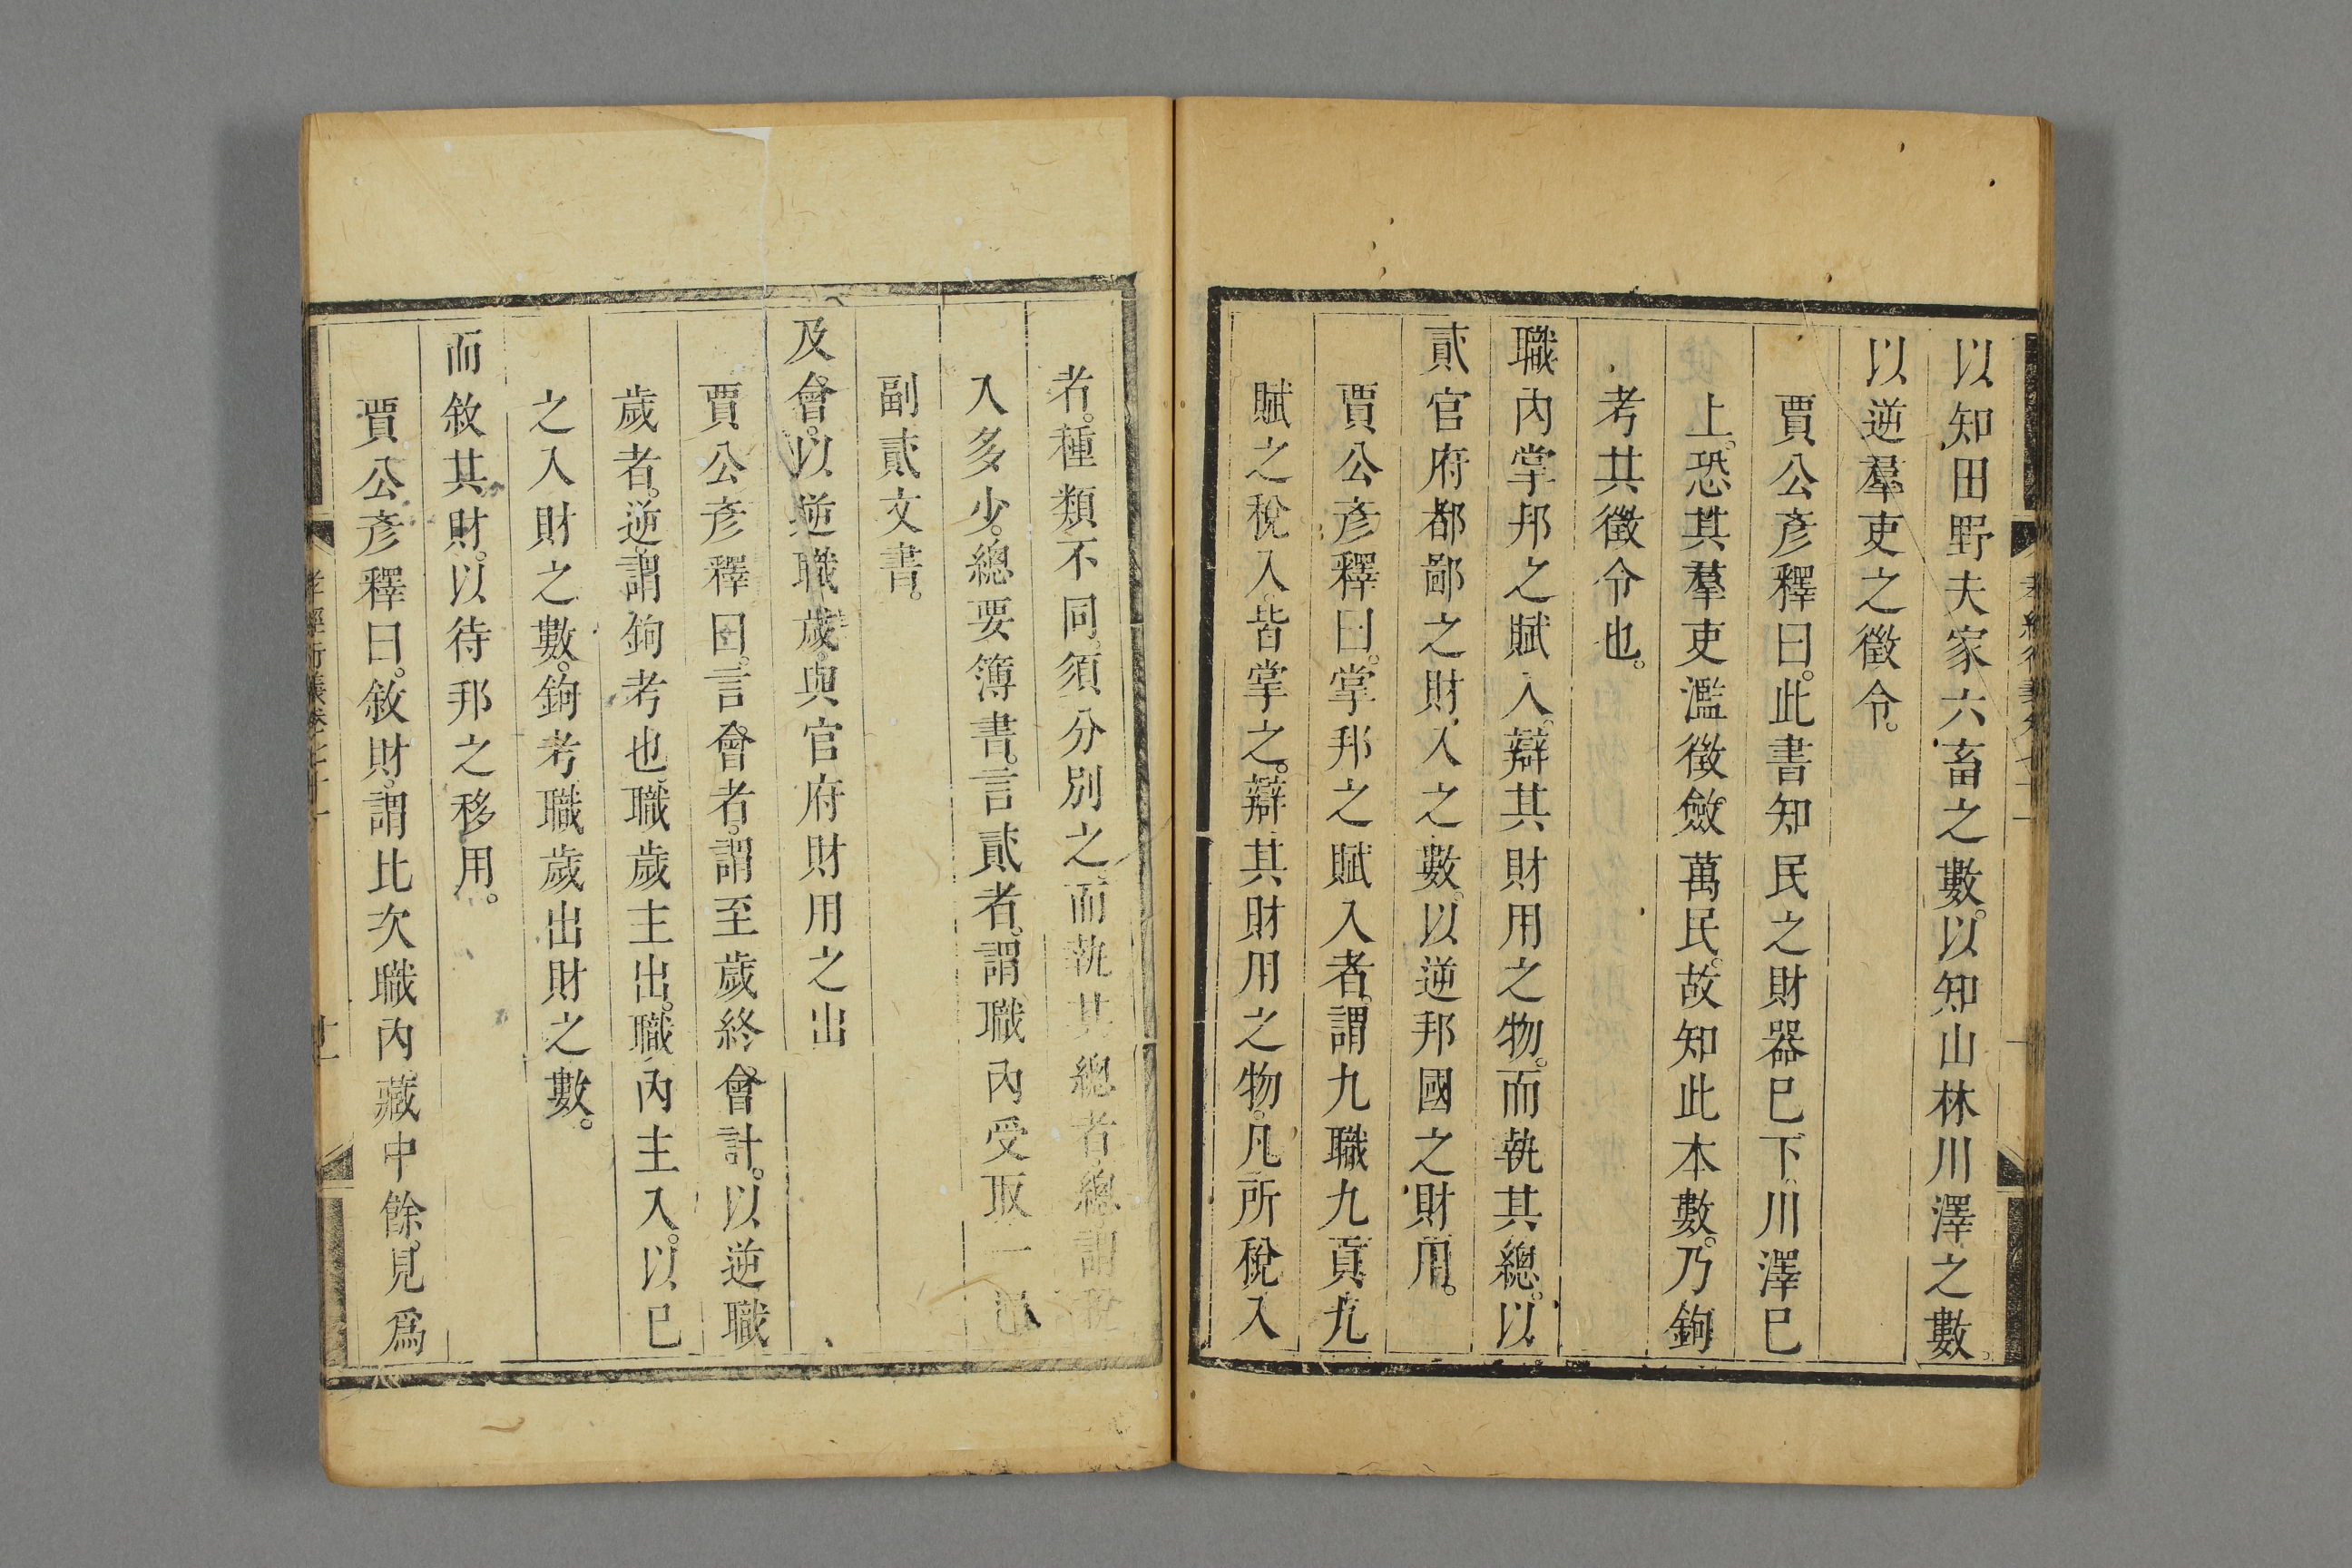 以知田野夫家六畜之數。以知山林川澤之數。
以逆羣吏之徵令。
賈公彥釋曰。此書知民之財器已下川澤已
上。恐其羣吏濫徵斂萬民。故知此本數。乃鉤
考其徵令也。
職內掌邦之賦入。辯其財用之物。而執其總。以
貳官府都鄙之財入之數。以逆邦國之財用。
賈公彥釋曰。掌邦之賦入者。謂九職九貢九
賦之稅入。皆掌之。辯其財用之物。凡所稅入
者。種類不同。須分別之。而執其總者。總謂稅
入多少。總要簿書。言貳者。謂職內受取一通
副貳文書。
及會。以逆職歲。與官府財用之出
賈公彥釋曰。言會者。謂至歲終會計。以逆職
歲者。逆。謂鉤考也。職歲主出。職內主入。以已
之入財之數。鉤考職歲出財之數。
而敘其財。以待邦之移用。
賈公彥釋曰。敘財。謂比次職內藏中餘。見爲
孝經衍義卷七十一